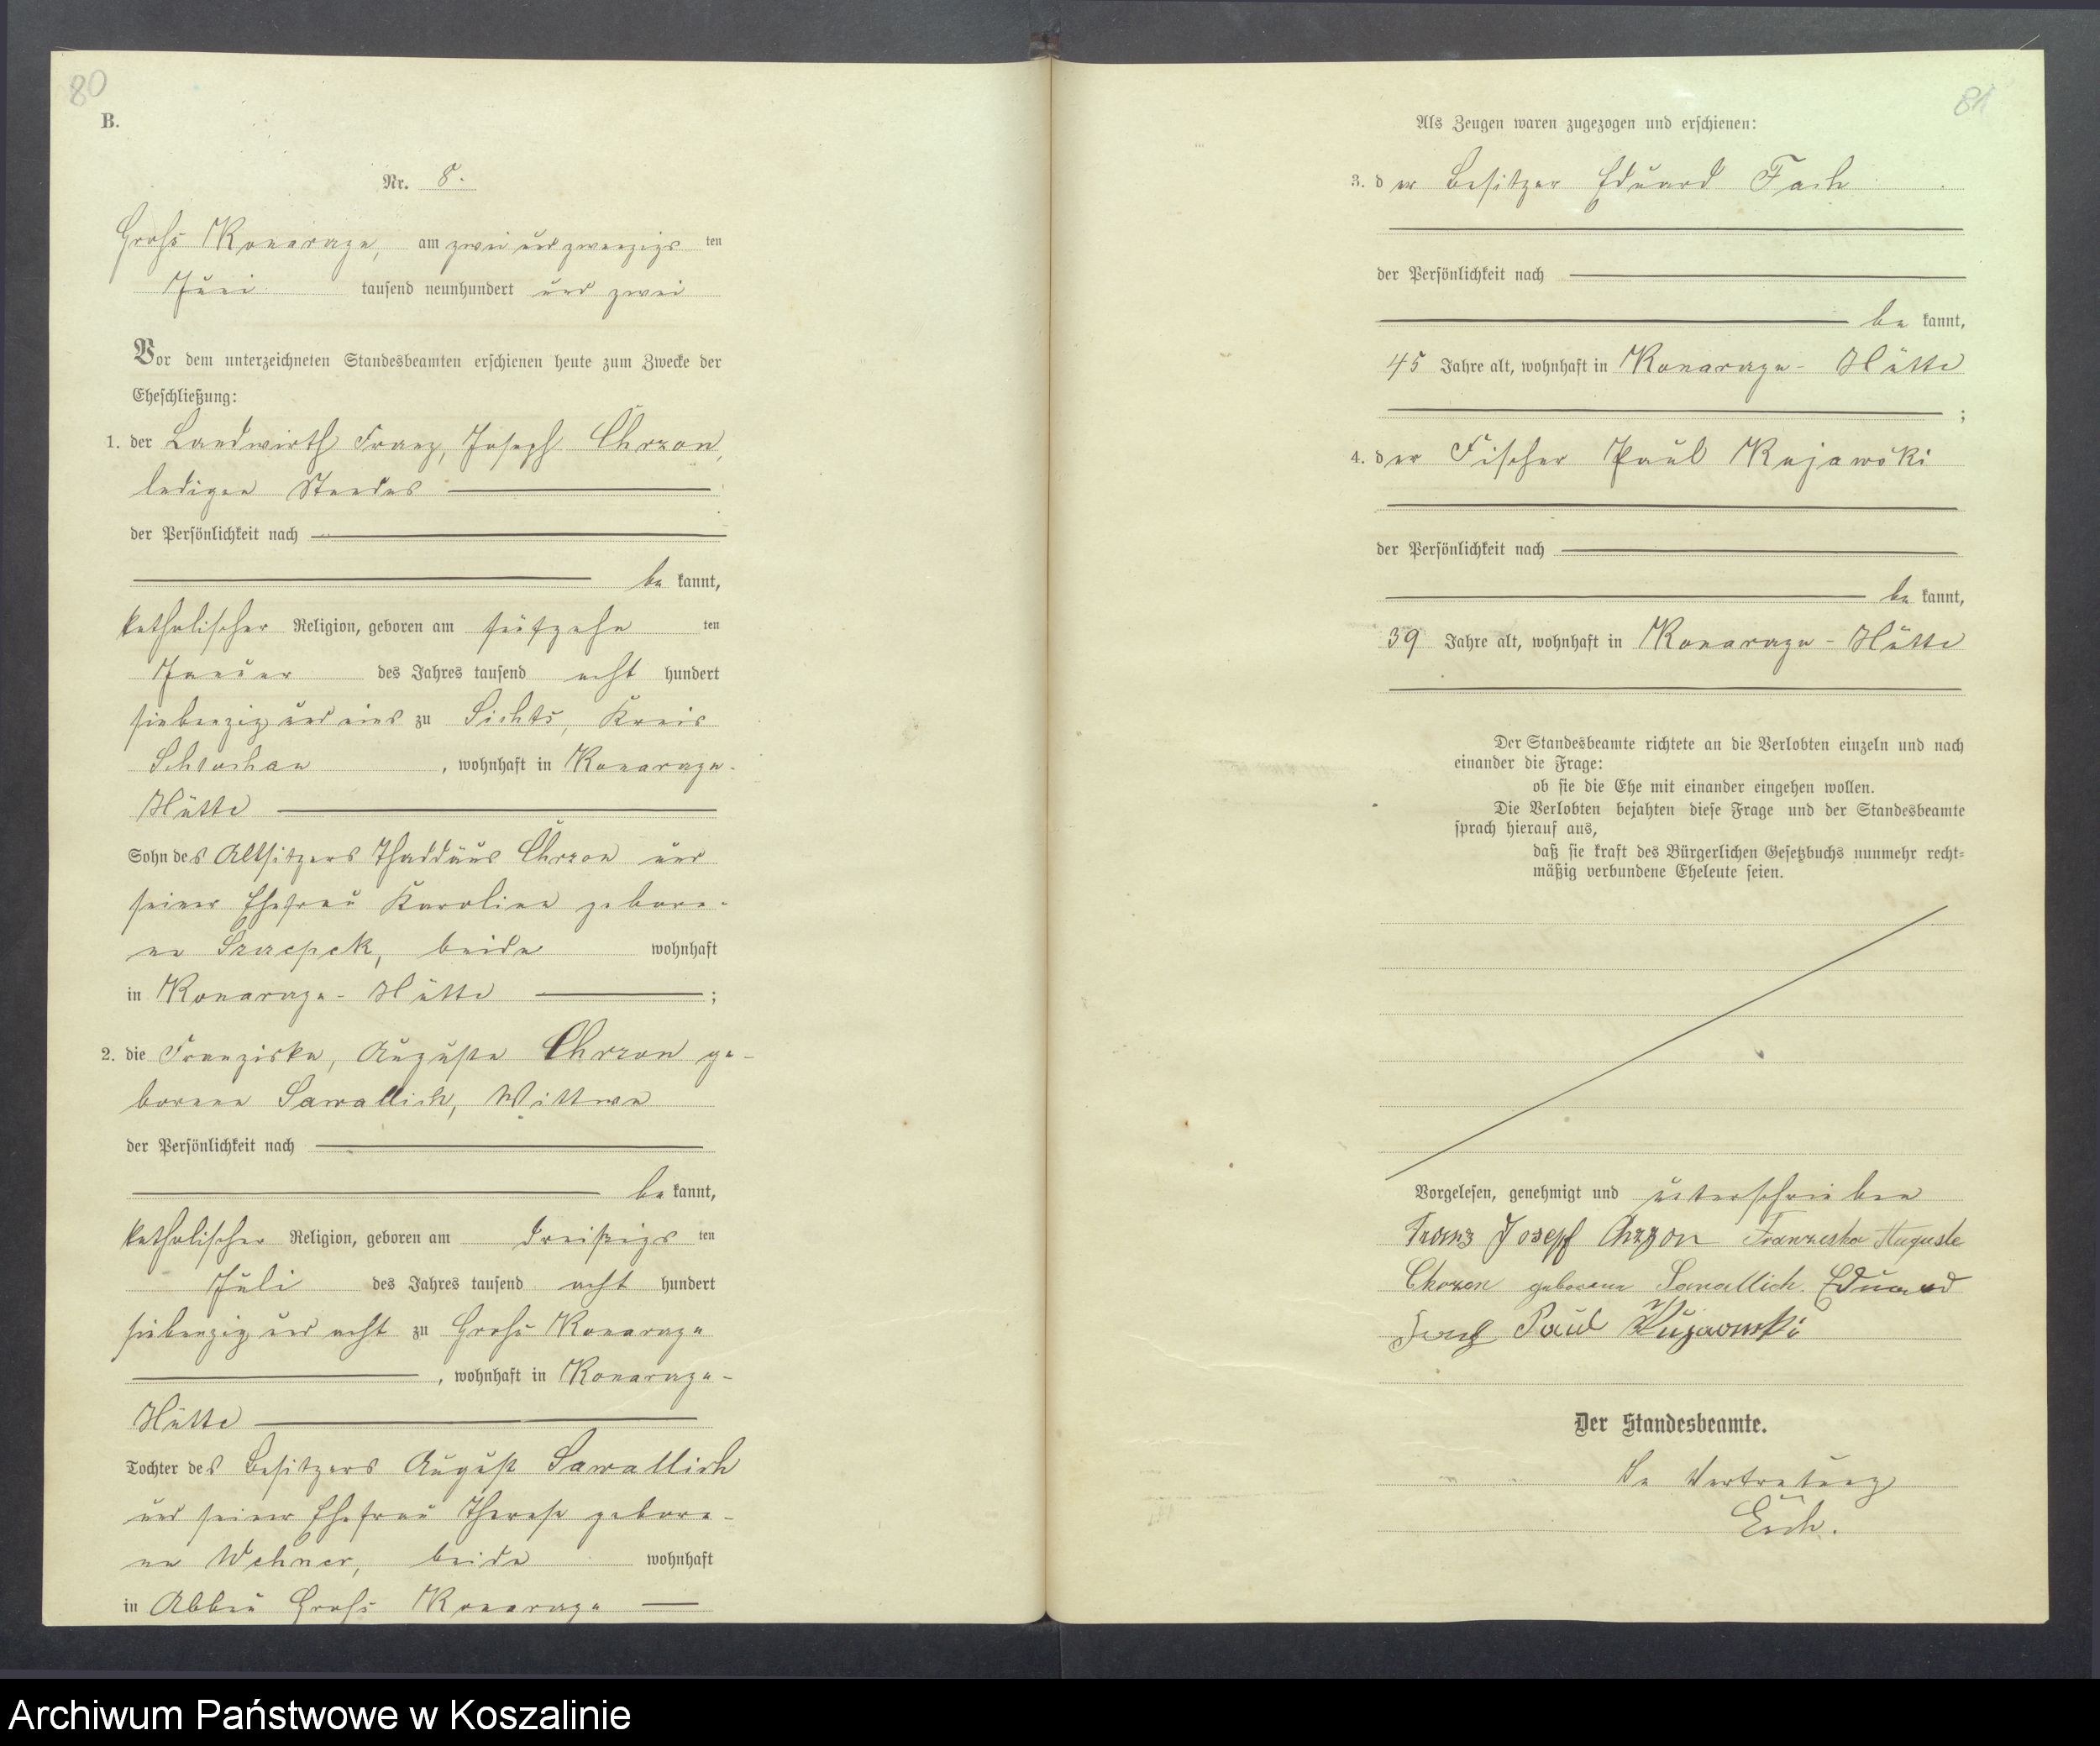 80
B.
Nr. 8.
Groß Konarzyn, am zwei und zwanzigs ten
Juni tausend neunhundert und zwei
Vor dem unterzeichneten Standesbeamten erschienen heute zum Zwecke der
Eheschließung:
1. der Landwirth Franz, Joseph Chrzon,
ledigen Standes
der Persönlichkeit nach
be kannt,
katholischer Religion, geboren am fünfzehn ten
Januar des Jahres tausend acht hundert
siebenzig und eins zu Lichts, Kreis
Schlochau, wohnhaft in Konarzyn-
Hütte
Sohn des Altsitzers Thaddäus Chrzon und
seiner Ehefrau Karoline gebore-
ne beide wohnhaft
in Konarzyn-Hütte ;
2. die Franziska, Auguste Chrzon ge-
borene Sawallich, Wittwe
der Persönlichkeit nach
be kannt,
katholischer Religion, geboren am dreißigs ten
Juli des Jahres tausend acht hundert
siebenzig und acht zu Groß Konarzyn
, wohnhaft in Konarzyn-
Hütte
Tochter des Besitzers August Sawallich
und seiner Ehefrau Therese gebore-
ne Wehner, beide wohnhaft
in Abbau Groß Konarzyn
81
Als Zeugen waren zugezogen und erschienen:
3. der Besitzer Eduard
der Persönlichkeit nach
be kannt,
45 Jahre alt, wohnhaft in Konarzyn-Hütte
;
4. der Fischer Paul Kujawski
der Persönlichkeit nach
be kannt,
39 Jahre alt, wohnhaft in Konarzyn-Hütte
Der Standesbeamte richtete an die Verlobten einzeln und nach
einander die Frage:
ob sie die Ehe mit einander eingehen wollen.
Die Verlobten bejahten diese Frage und der Standesbeamte
sprach hierauf aus,
daß sie kraft des Bürgerlichen Gesetzbuchs nunmehr recht-
mäßig verbundene Eheleute seien.
Vorgelesen, genehmigt und unterschrieben
Franz Josepf Chrzon Franziska Auguste
Chrzon geborene Sawallich. Eduard
Paul Kujawski
Der Standesbeamte.
In Vertretung
Archiwum Państwowe w Koszalinie